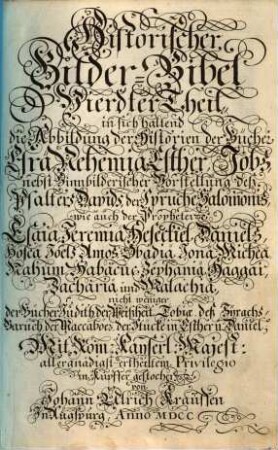 Historischer
Bilder-Bibel
Vierdter Theil,
in sich haltend
die Abbildung der Historien der Bücher
Esra Nehemia Esther, Job,
nebst Sinnbilderischer Vorstellung deß
Psalters Davids, der Sprüche Salomonis,
wie auch der Propheten
Esaia, Jeremia, Hesekiel, Daniels,
Hosea, Joels, Amos, Obadia, Jona, Micha,
Nahum, Habacuc, Zephania, Haggai,
Zacharia und Malachia,
nicht weniger
der Bücher Judith der Weißheit, Tobiæ, deß Syrachs,
Baruch der Maccabæer der Stucke in Esther u. Daniel,
Mit Röm: Kayserl: Majest:
allergnädigst ertheiltem Privilegio
in Kupffer gestochen
von
Johann Ulrich Kraussen
In Augspurg, Anno MDCC